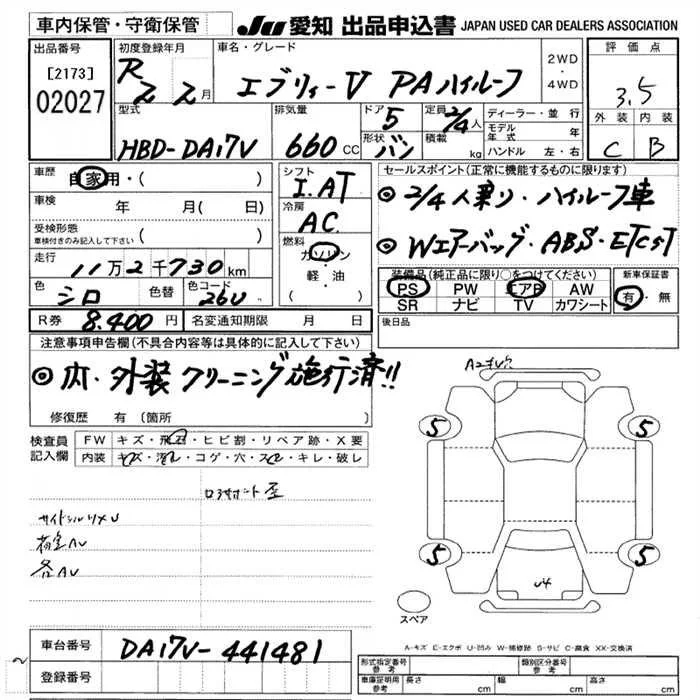 車内保管・守衛保管 JU 愛知 出品申込書 JAPAN USED CAR DEALERS ASSOCIATION
出品番号 初度登録年月 車名・グレード 評価点
[2173] R2 2月 エブリィーV PAハイルーフ 2WD・4WD 3.5
02027
型式 排気量 ドア 5 定員 2/4人 ディーラー・並行 外装 内装
HBD-DA17V 660cc 形状 バン 積載 kg モデル年式 年 C B
ハンドル 左・右
車歴 自家用・( ) シフト セールスポイント(正常に機能するものに限ります)
I.AT ◎2/4人乗り・ハイルーフ車
車検 年 月( 日) 冷房
AC
受検形態 ( ) ◎Wエアーバッグ・ABS・ETCST
車検付きのみ記入して下さい
燃料
走行 11万2千730km ガソリン 装備品(純正品に限り○をつけてください) 新車保証書
軽・油 PS PW エアB AW 有・無
色 シロ 色替 色コード 26U SR ナビ TV カワシート
R券 8,400円 名変通知期限 月 日 後日品
注意事項申告欄(不具合内容等は具体的に記入して下さい)
◎内・外装クリーニング施行済!!
修復歴 有(箇所
検査員 FW キズ・飛石・ヒビ割・リペア跡・X要
記入欄 内装 キズ・汚れ・コゲ・穴・スレ・キレ・破レ
サイドシルリメU
荷室AU
各AU
5 5
5 5
U4
スペア
A-キズ E-エクボ U-凹み W-補修跡 S-サビ C-腐食 XX-交換済
車台番号 DA17V-441481
登録番号
形式指定番号 参考 類別区分番号 参考
車庫証明用 参考 長さ cm 幅 cm 高さ cm